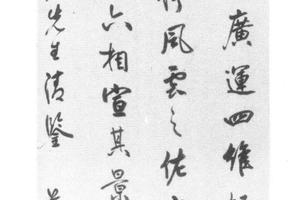 廣運四維
風雲之佐
六相宣其景
先生清鑒